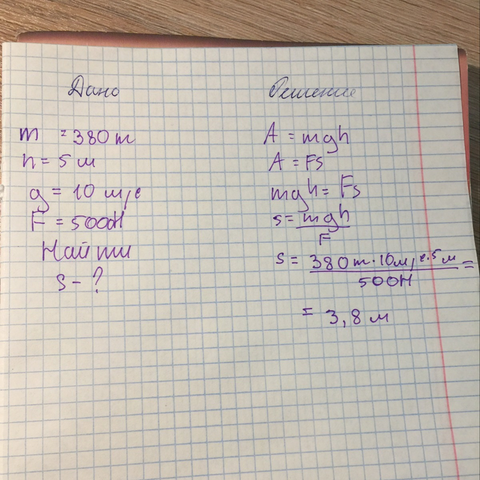 Дано
m = 380 т
h = 5 м
g = 10 м/с
F = 500Н
Найти
s - ?
Решение
A = mgh
A = Fs
mgh = Fs
s = mgh
F
s = 380 т · 10 м/с · 5 м =
500Н
= 3,8 м